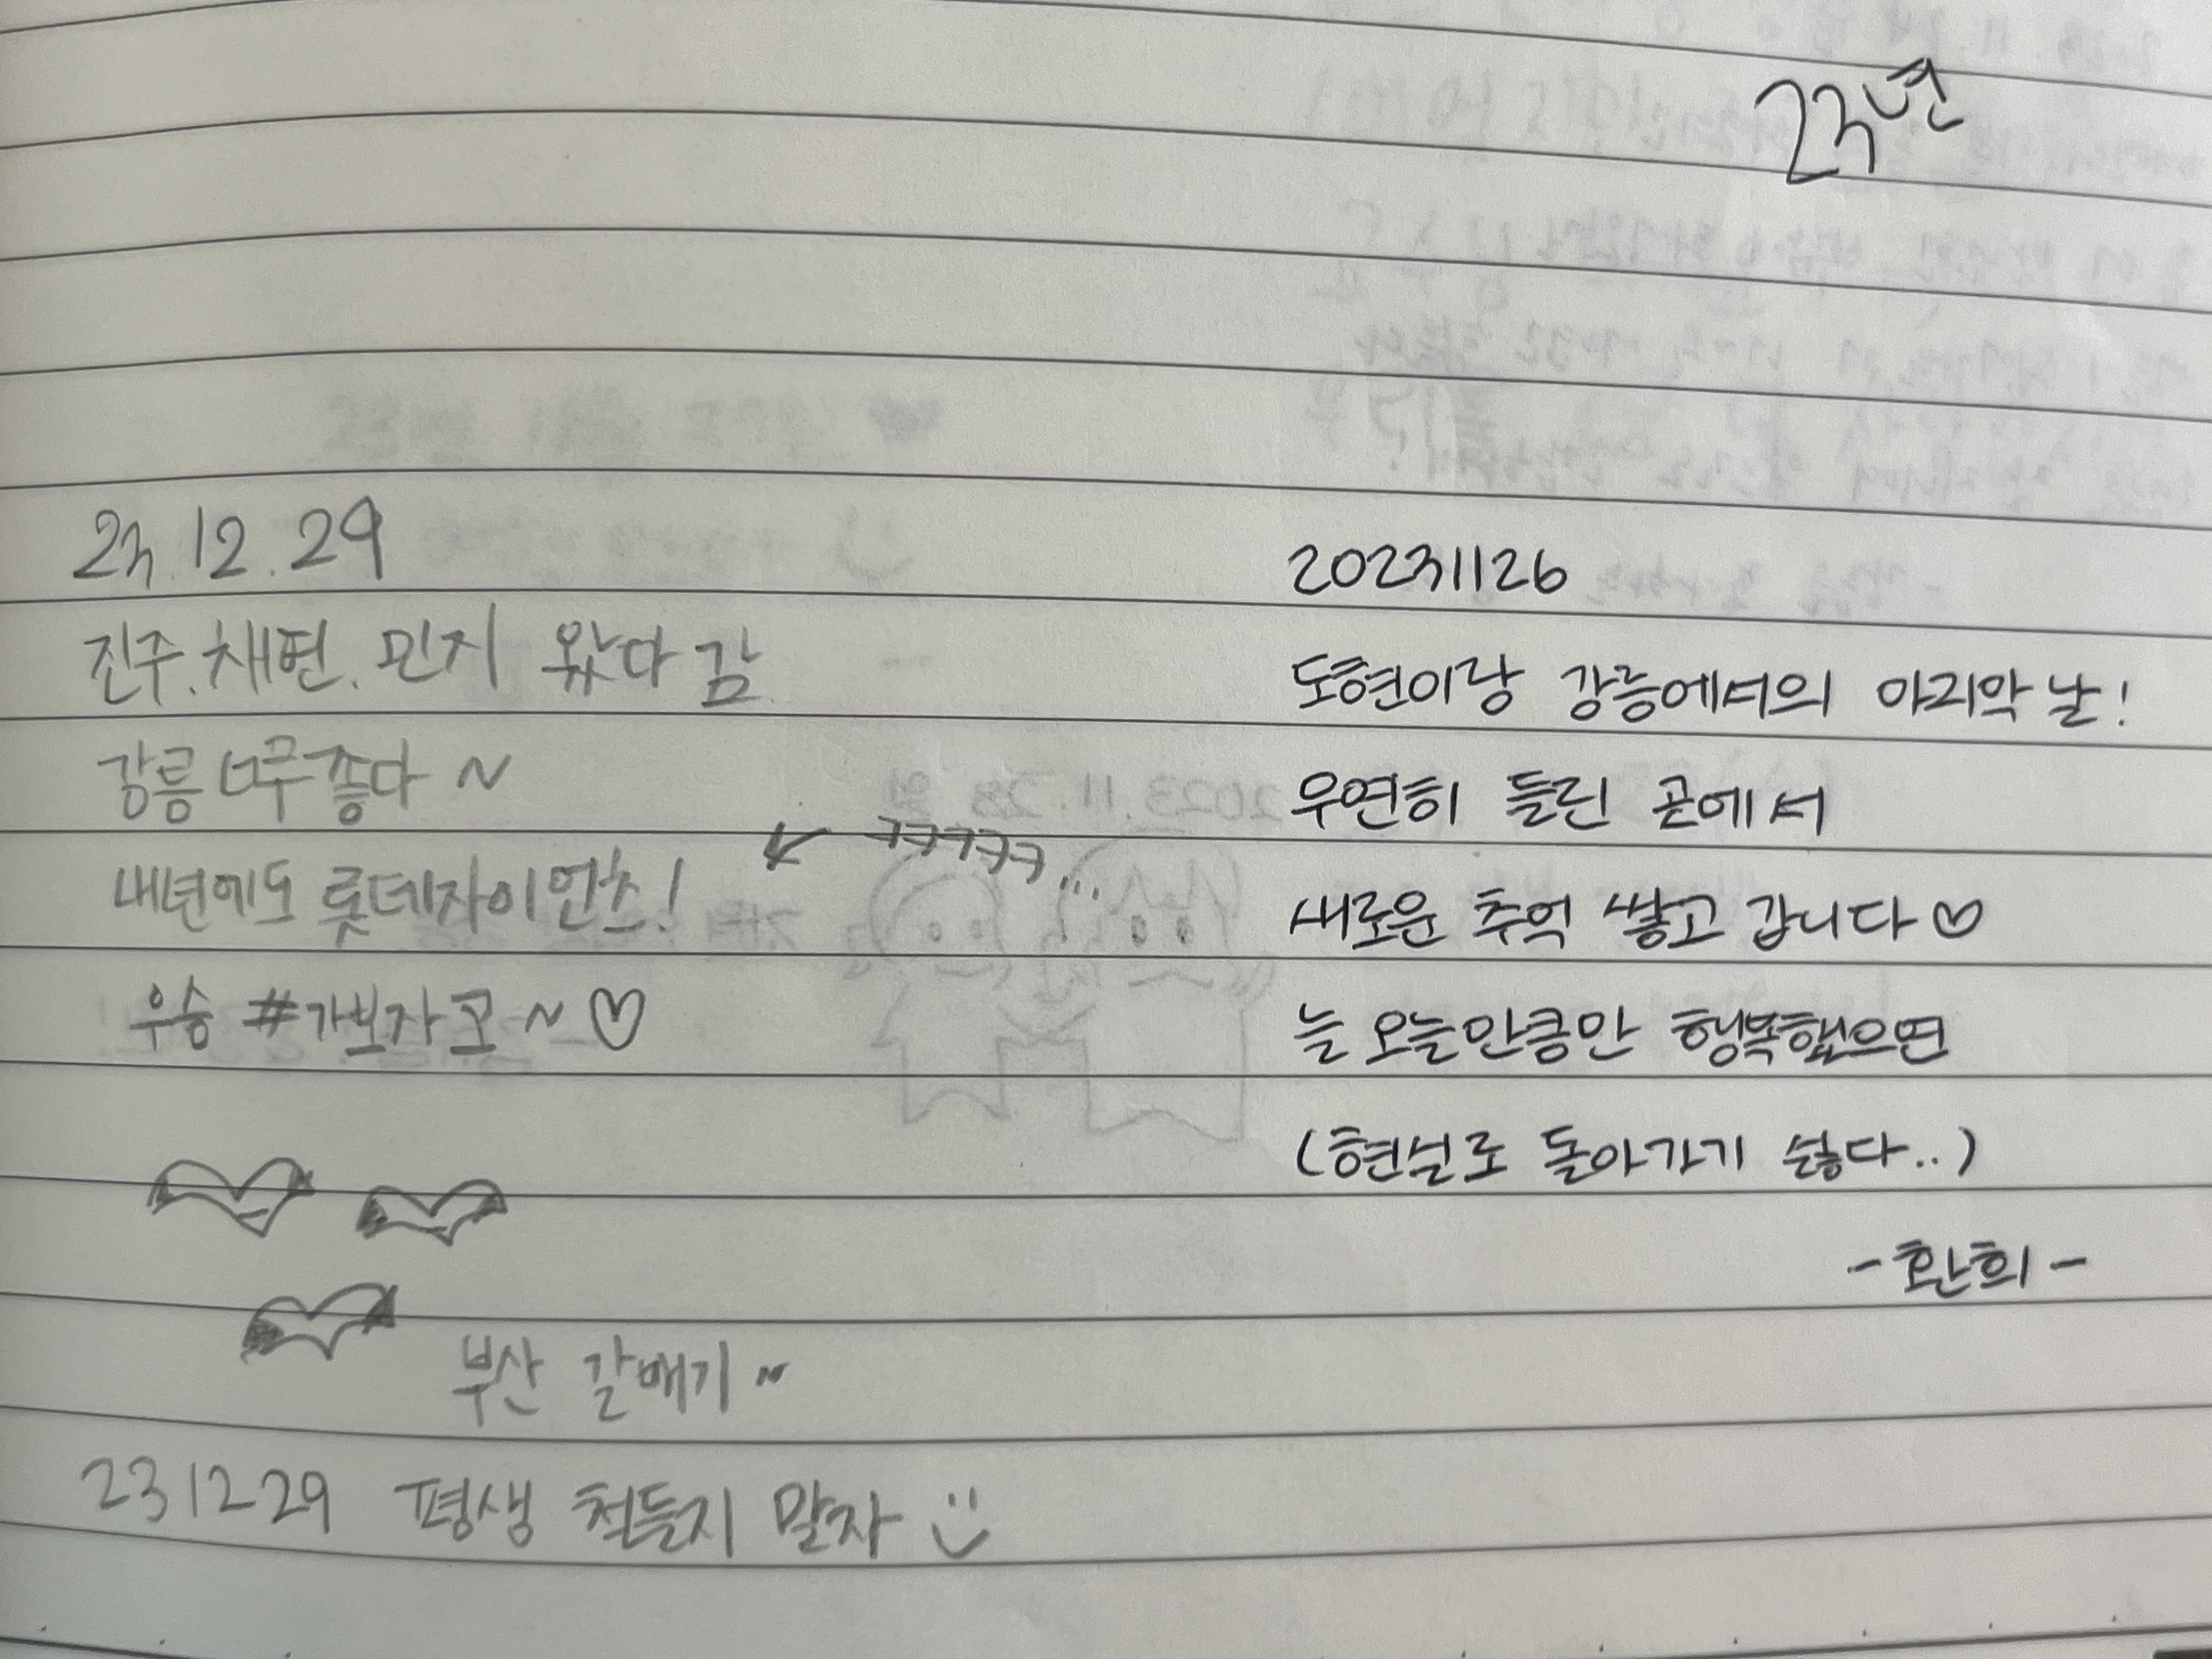 23년
23.12.29
진주.채현.민지 왔다 감
강릉 너무 좋다~
내년에도 롯데자이언츠!
ㅋㅋㅋㅋㅋ...
우승 #가보자고~♡
부산 갈매기~
231229 평생 철들지 말자
20231126
도현이랑 강릉에서의 마지막 날!
우연히 들린 곧에서
새로운 추억 쌓고 갑니다♡
늘 오늘만큼만 행복했으면
(현실로 돌아가기 싫다..)
-환희-